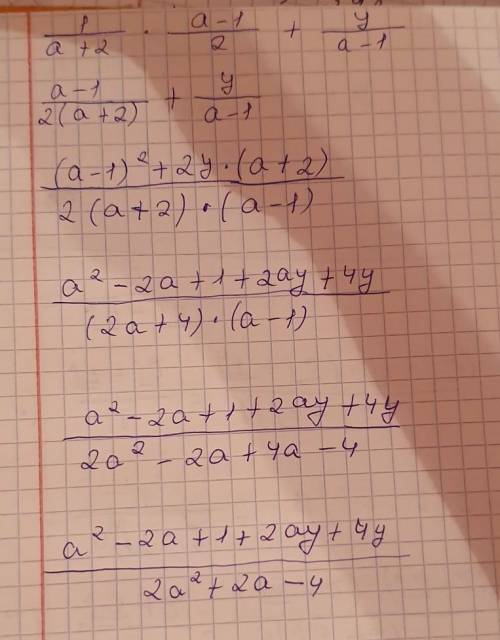 1/(a+2) · (a-1)/2 + y/(a-1)
(a-1)/(2(a+2)) + y/(a-1)
((a-1)² + 2y·(a+2))/(2(a+2)·(a-1))
(a² - 2a + 1 + 2ay + 4y)/((2a+4)·(a-1))
(a² - 2a + 1 + 2ay + 4y)/(2a² - 2a + 4a - 4)
(a² - 2a + 1 + 2ay + 4y)/(2a² + 2a - 4)